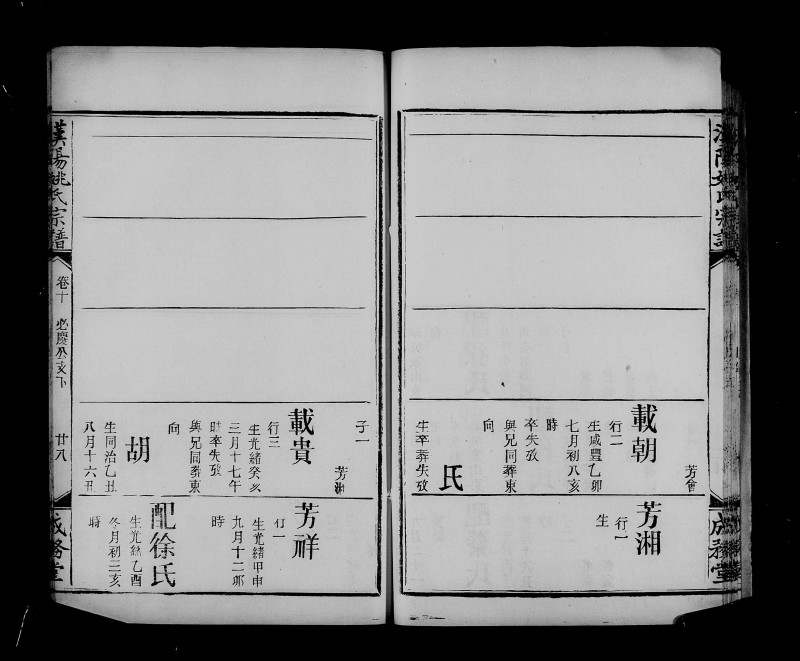 芳會
載朝
行二
生咸豐乙卯
七月初八亥
時
卒失攷
與兄同葬東
向
氏
生卒葬失攷
芳湘
行一
生
漢陽姚氏宗譜
卷十
必慶公亥下
廿八
成務堂
子一
芳湘
載貴
行三
生光緒癸亥
三月十七午
時卒失攷
與兄同葬東
向
胡
生同治乙丑
八月十六丑
芳祥
行一
生光緒甲申
九月十二卯
時
配徐氏
生光緒乙酉
冬月初三亥
時